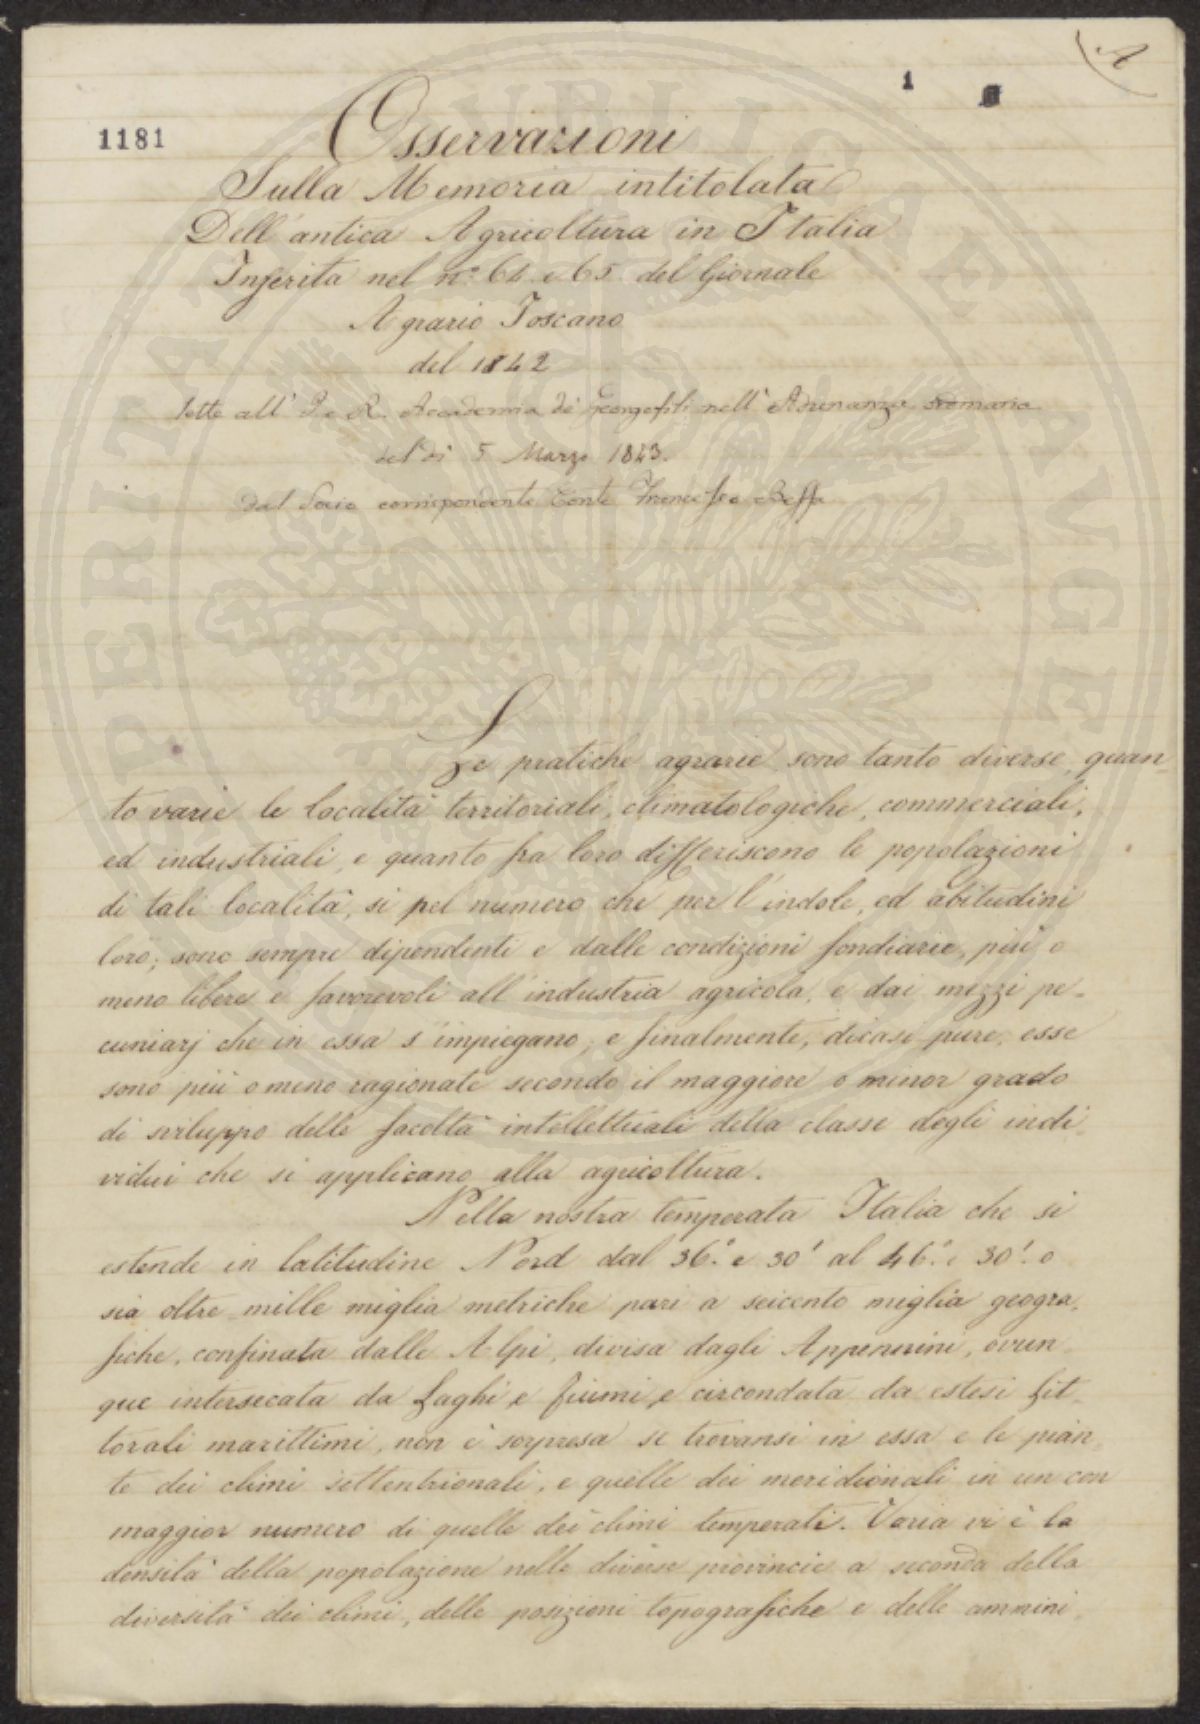 A
1
1181
Osservazioni
Sulla Memoria intitolata
Dell'antica Agricoltura in Italia
Inserita nel n.º 64. e 65. del Giornale
Agrario Toscano
del 1842
lette all' I. e R. Accademia de' Georgofili nell' Adunanza
del dì 5 Marzo 1843.
dal Socio corrispondente Conte Francesco Beffa
Le pratiche agrarie sono tanto diverse, quan-
to varie le località territoriali, climatologiche, commerciali,
ed industriali, e quanto fra loro differiscono le popolazioni
di tali località, si pel numero che per l'indole, ed abitudini
loro; sono sempre dipendenti e dalle condizioni fondiarie, più o
meno libere e favorevoli all'industria agricola, e dai mezzi pe-
cuniarj che in essa s'impiegano; e finalmente, dicasi pure, esse
sono più o meno ragionate secondo il maggiore o minor grado
di sviluppo delle facoltà intellettuali della classe degli indi-
vidui che si applicano alla agricoltura.
Nella nostra temperata Italia che si
estende in latitudine Nord dal 36.º e 30' al 46.º e 30'. o
sia oltre mille miglia metriche pari a seicento miglia geogra-
fiche, confinata dalle Alpi, divisa dagli Appennini, ovun-
que intersecata da Laghi e fiumi, e circondata da estesi Lit-
torali marittimi, non è sorpresa se trovansi in essa e le pian-
te dei climi settentrionali, e quelle dei meridionali in un con
maggior numero di quelle dei climi temperati. Varia vi è la
densità della popolazione nelle diverse provincie a seconda della
diversità dei climi, delle posizioni topografiche e delle ammini-
PROSPERITATI PUBLICAE AUGENDAE